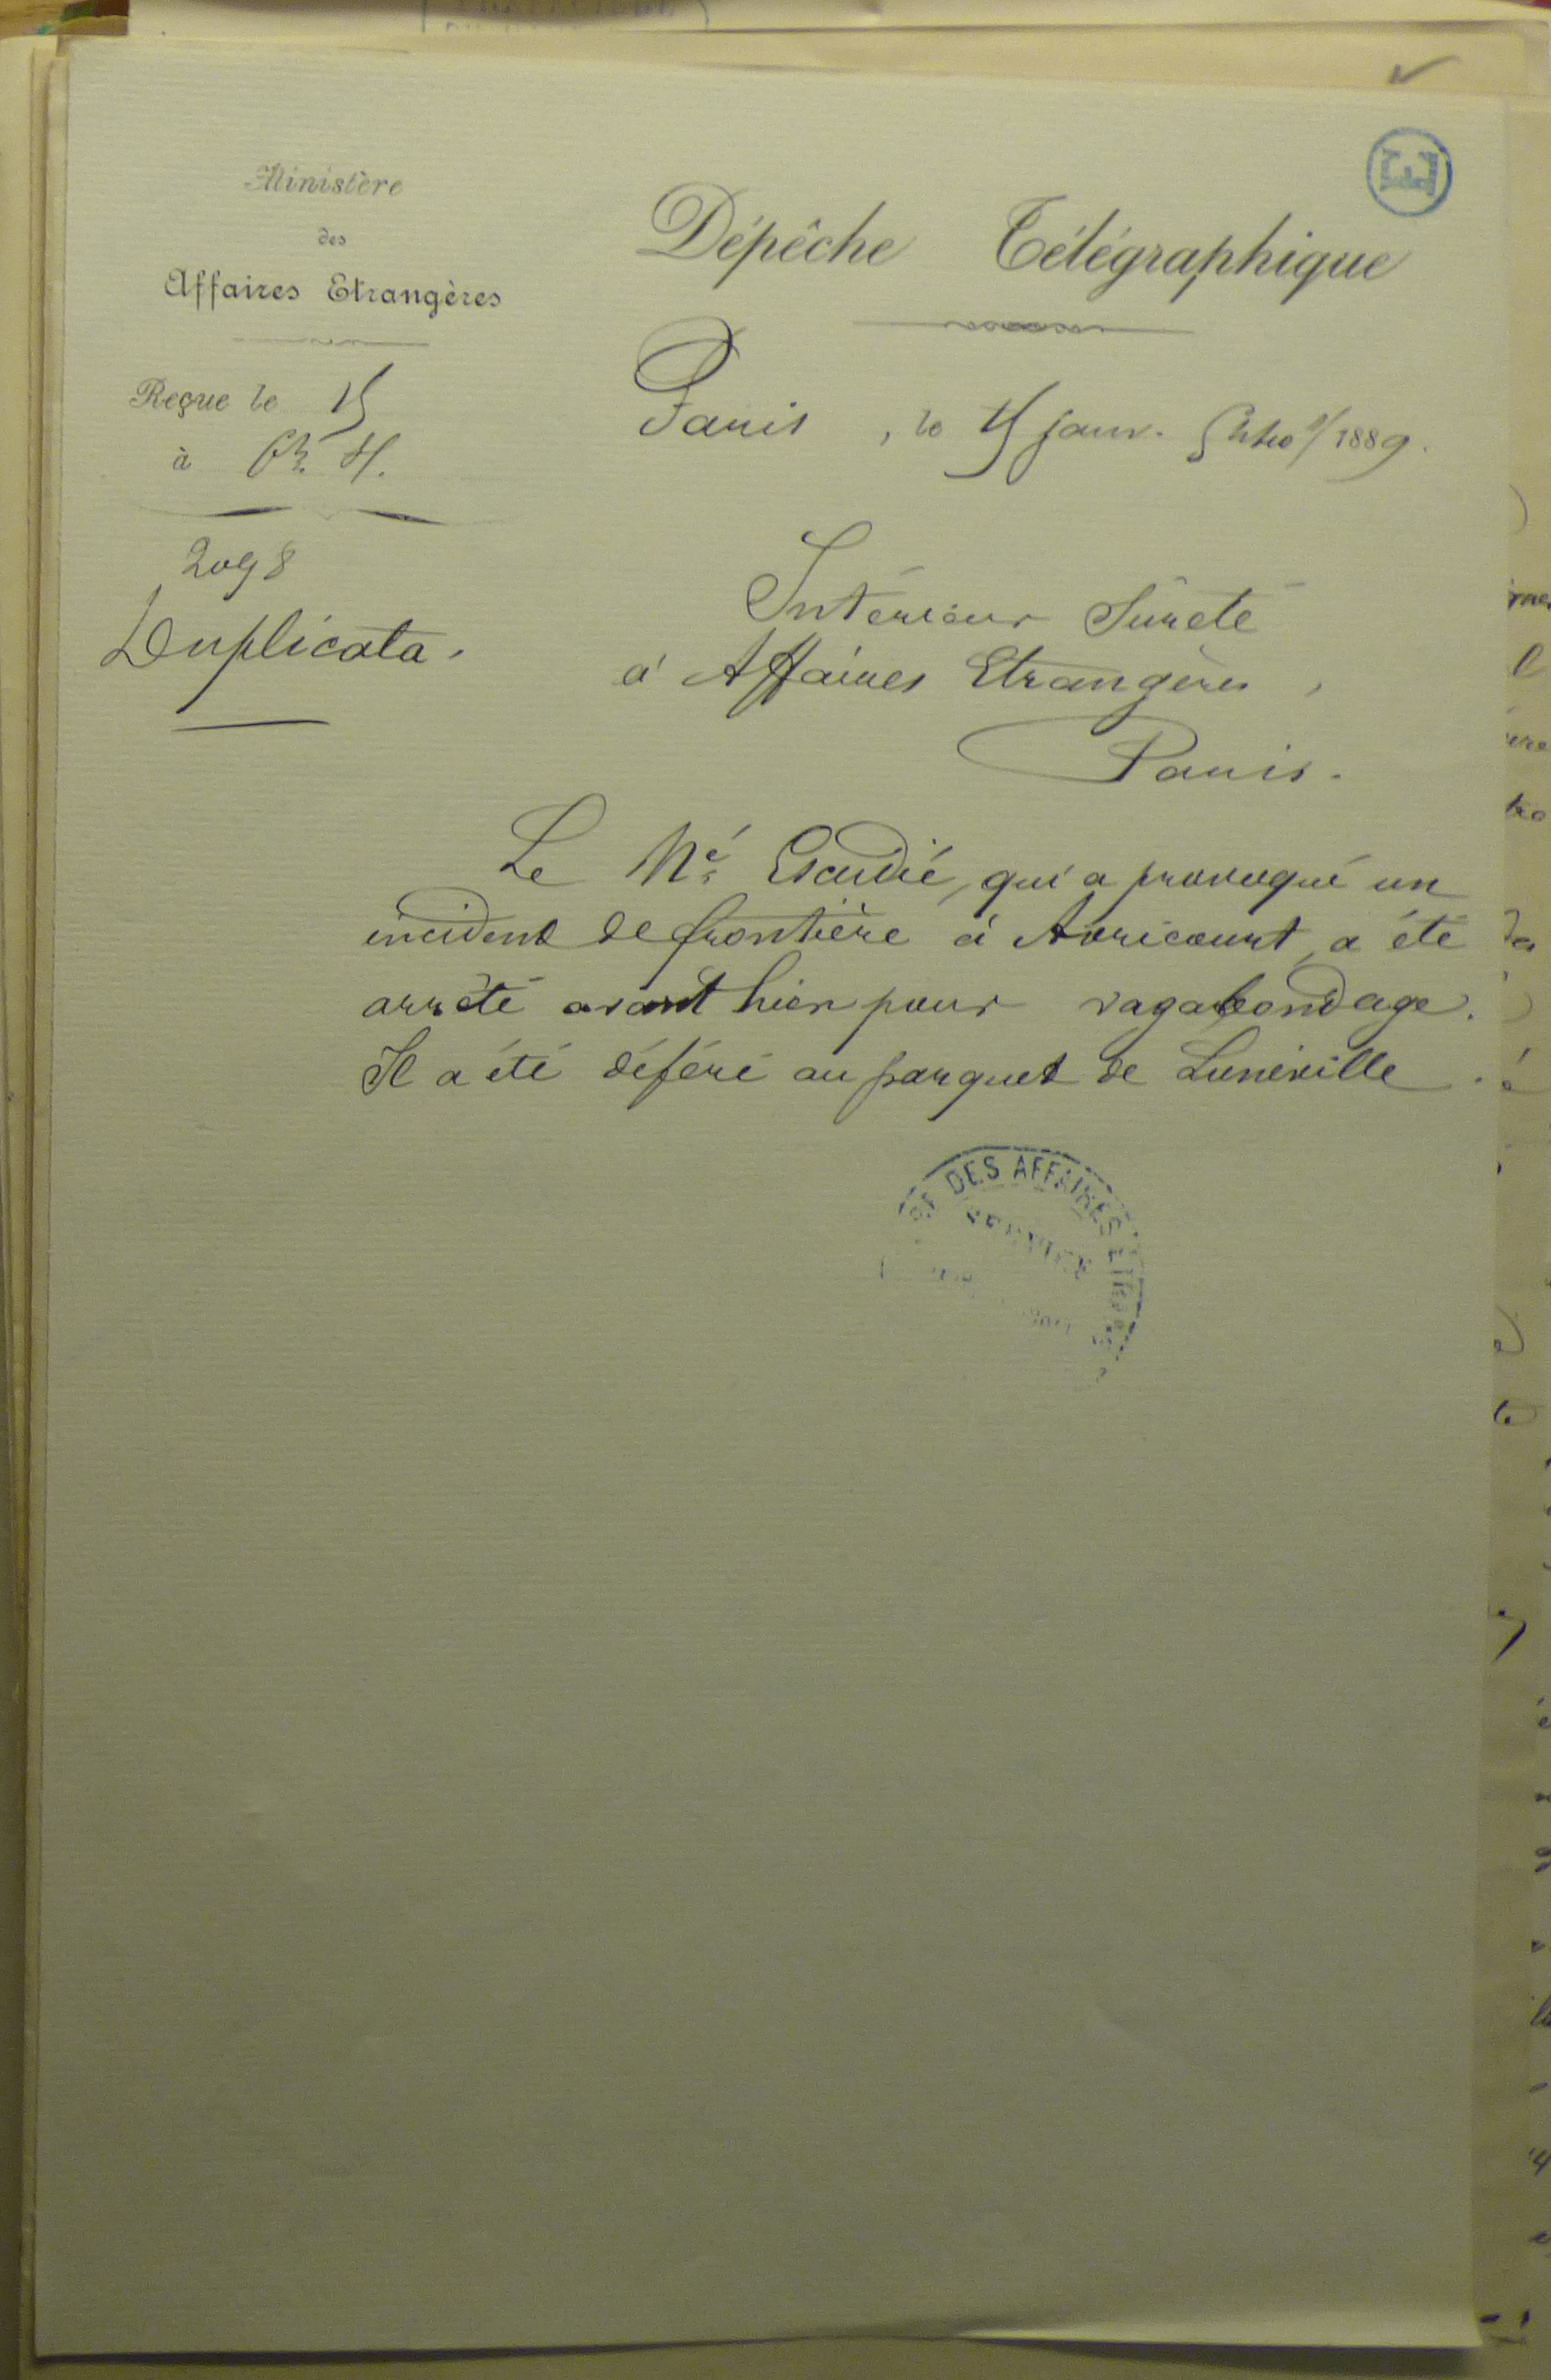 Ministère
des
Affaires Etrangères
Reçue le 15
à 6h. S/.
2098
Duplicata.
E
Dépêche Télégraphique
Paris, le 15 janv. 5h40 S/ 1889.
Intérieur Sûreté
à Affaires Etrangères,
Paris.
Le Né Escudié, qui a provoqué un
incident de frontière à Avricourt, a été
arrêté avant hier pour vagabondage.
Il a été déféré au parquet de Lunéville.
DES AFFAIRES